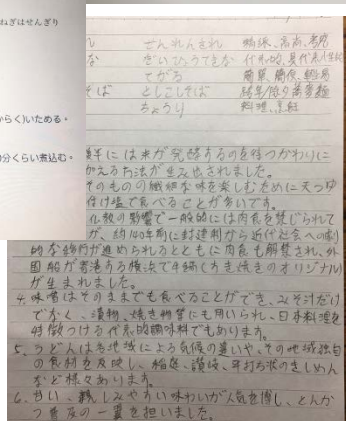 ねぎはせんぎり
らく)いためる。
分くらい煮込む。
せんれんされ 高尚、
だいひょうてきな 代表的、具代表性的
てがる 簡單、簡便、輕易
そば としこしそば 蕎麥麵
ちょうり 料理、烹飪
には米が発酵するのを待つかわりに
加える方法が生み出されました。
そのものの繊細な味を楽しむために天つゆ
付け塩で食べることが多いです。
仏教の影響で一般的には肉食を禁じられて
が、約140年前に封建制から近代社会への制
的な移行が進められるとともに肉食も解禁され、外
国船が寄港する横浜で牛鍋(すき焼きのオリジナル)
が生まれました。
4. 味噌はそのままでも食べることができ、みそ汁だけ
でなく、漬物、焼き物等にも用いられ、日本料理を
特徴つける代表的調味料でもあります。
5. うどんは各地域による気候の違いや、その地域独自
の食材を反映し、稲庭、讃岐、平打ち状のきしめん
など様々あります。
6. 甘い、親しみやすい味わいが人気を博し、とんか
つ普及の一翼を担いました。